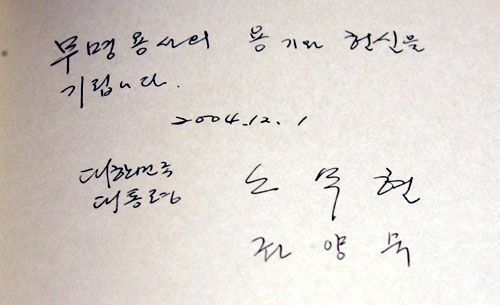 무명용사의 용기와 헌신을
기립니다.
2004. 12. 1
대한민국
대통령 노무현
권양숙